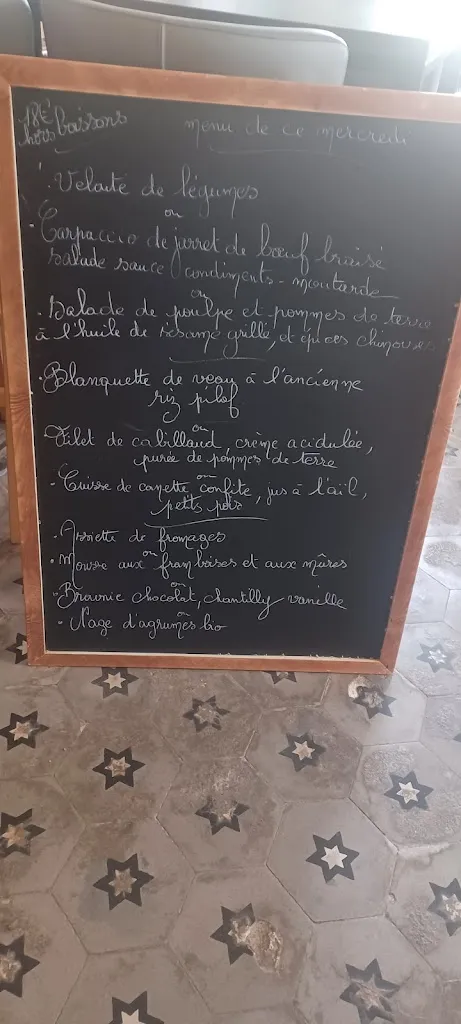 18€ boissons menu de ce mercredi
hors
. Velouté de légumes
ou
- Carpaccio de jarret de bœuf braisé
salade sauce condiments - moutarde
ou
. Salade de poulpe et pommes de terre
à l'huile de sésame grillé, et épices chinoises
. Blanquette de veau à l'ancienne
riz pilaf
ou
- Filet de cabillaud, crème acidulée,
purée de pommes de terre
ou
- Cuisse de canette confite, jus à l'aïl,
petits pois
. Assiette de fromages
ou
. Mousse aux framboises et aux mûres
ou
- Brownie chocolat, chantilly vanille
ou
- Nage d'agrumes bio